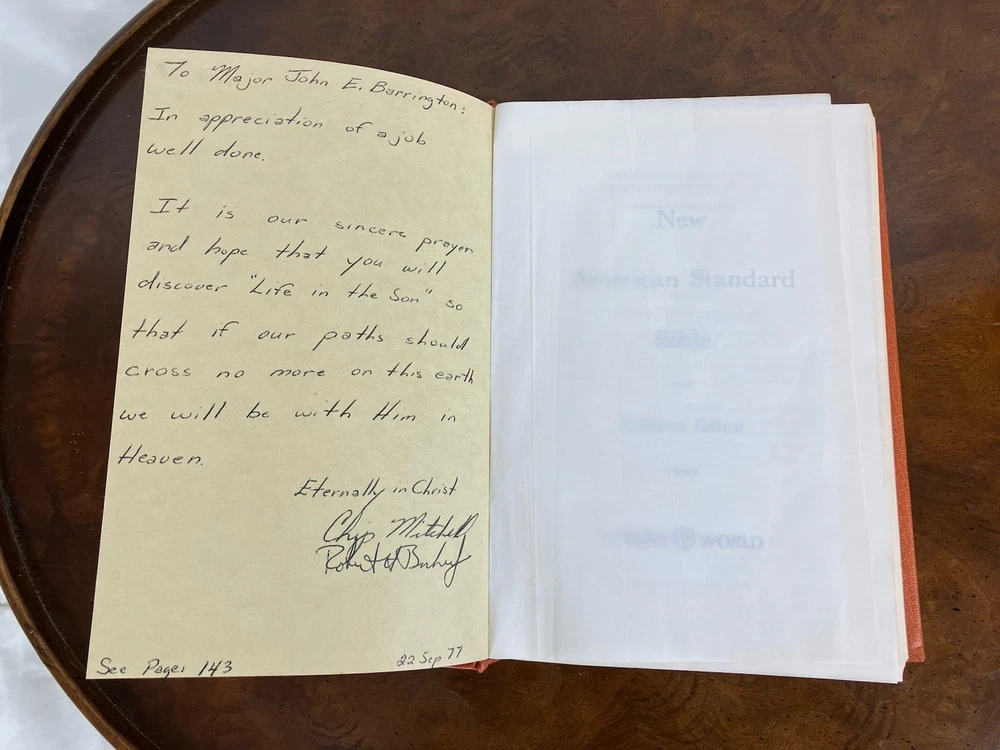 To Major John E. Barrington:
In appreciation of a job
well done.
It is our sincere prayer
and hope that you will
discover "Life in the Son" so
that if our paths should
cross no more on this earth
we will be with Him in
Heaven.
Eternally in Christ
Chip Mitchell
Robert
See Pages 143
22 Sep 77
New
American Standard
Bible
Edition
WORLD